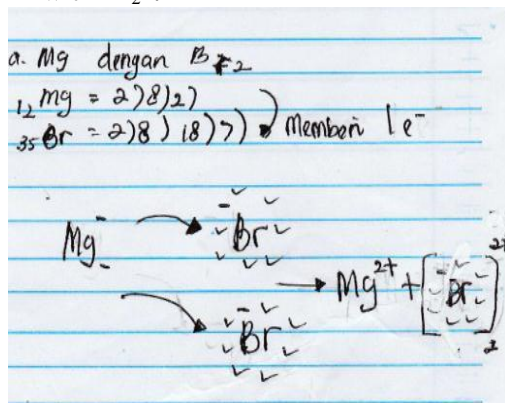 a. Mg dengan Br2
12Mg = 2)8)2)
35Br = 2)8)18)7) Memberi 1e-
Mg Br → Mg2+ + [Br]2+ 2
Br